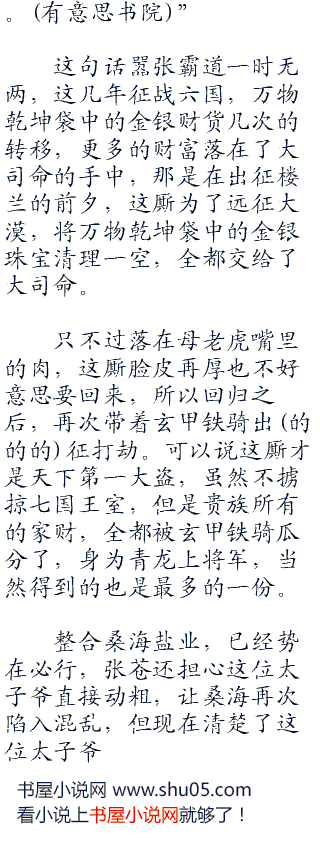 。(有意思书院)”
这句话嚣张霸道一时无
两，这几年征战六国，万物
乾坤袋中的金银财货几次的
转移，更多的财富落在了大
司命的手中，那是在出征楼
兰的前夕，这厮为了远征大
漠，将万物乾坤袋中的金银
珠宝清理一空，全都交给了
大司命。
只不过落在母老虎嘴里
的肉，这厮脸皮再厚也不好
意思要回来，所以回归之
后，再次带着玄甲铁骑出(的
的的)征打劫。可以说这厮才
是天下第一大盗，虽然不掳
掠七国王室，但是贵族所有
的家财，全都被玄甲铁骑瓜
分了，身为青龙上将军，当
然得到的也是最多的一份。
整合桑海盐业，已经势
在必行，张苍还担心这位太
子爷直接动粗，让桑海再次
陷入混乱，但现在清楚了这
位太子爷
书屋小说网 www.shu05.com
看小说上书屋小说网就够了！